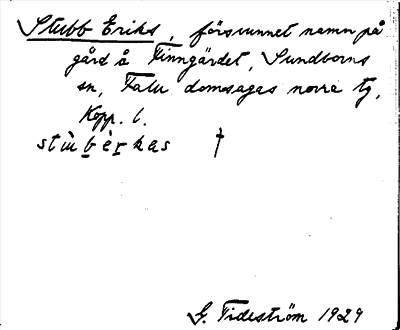 Stubb Eriks, försvunnet namn på
gård å Finngärdet, Sundborns
sn, Falu domsagas norra tg,
Kopp. l.
stùb̤èr̤kas †
G. Tideström 1929